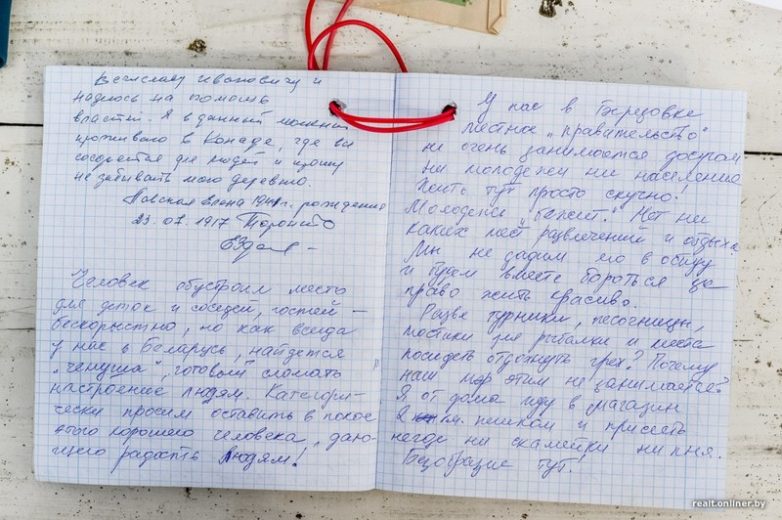 Вячеславу Ивановичу и
надеюсь на помощь
властей. Я в данный момент
проживаю в Канаде, где вы
для людей и прошу
не забывать мою деревню.
1941г. рождения
23.07.1917 Торонто
Человек обустроил место
для деток и соседей, гостей –
бескорыстно, но как всегда
у нас в Беларусь, найдется
"чинуша" готовый сломать
настроение людям. Категори-
чески просим оставить в покое
этого хорошего человека, даю-
щего радость людям!
У нас в
местное "правительство"
не очень занимается досугом
ни молодежи ни населения
Жить тут просто скучно!
Молодежь "бежит". Нет ни
каких мест развлечений и отдыха
Мы не дадим его в обиду
и будем вместе бороться за
право жить красиво.
Разве турники, песочницы,
мостики для рыбалки и места
посидеть отдохнуть грех? Почему
наш этим не занимается?
Я от дома иду в магазин
2 км. пешком и присесть
негде ни скамейки ни пня.
Безобразие тут!
realt.onliner.by